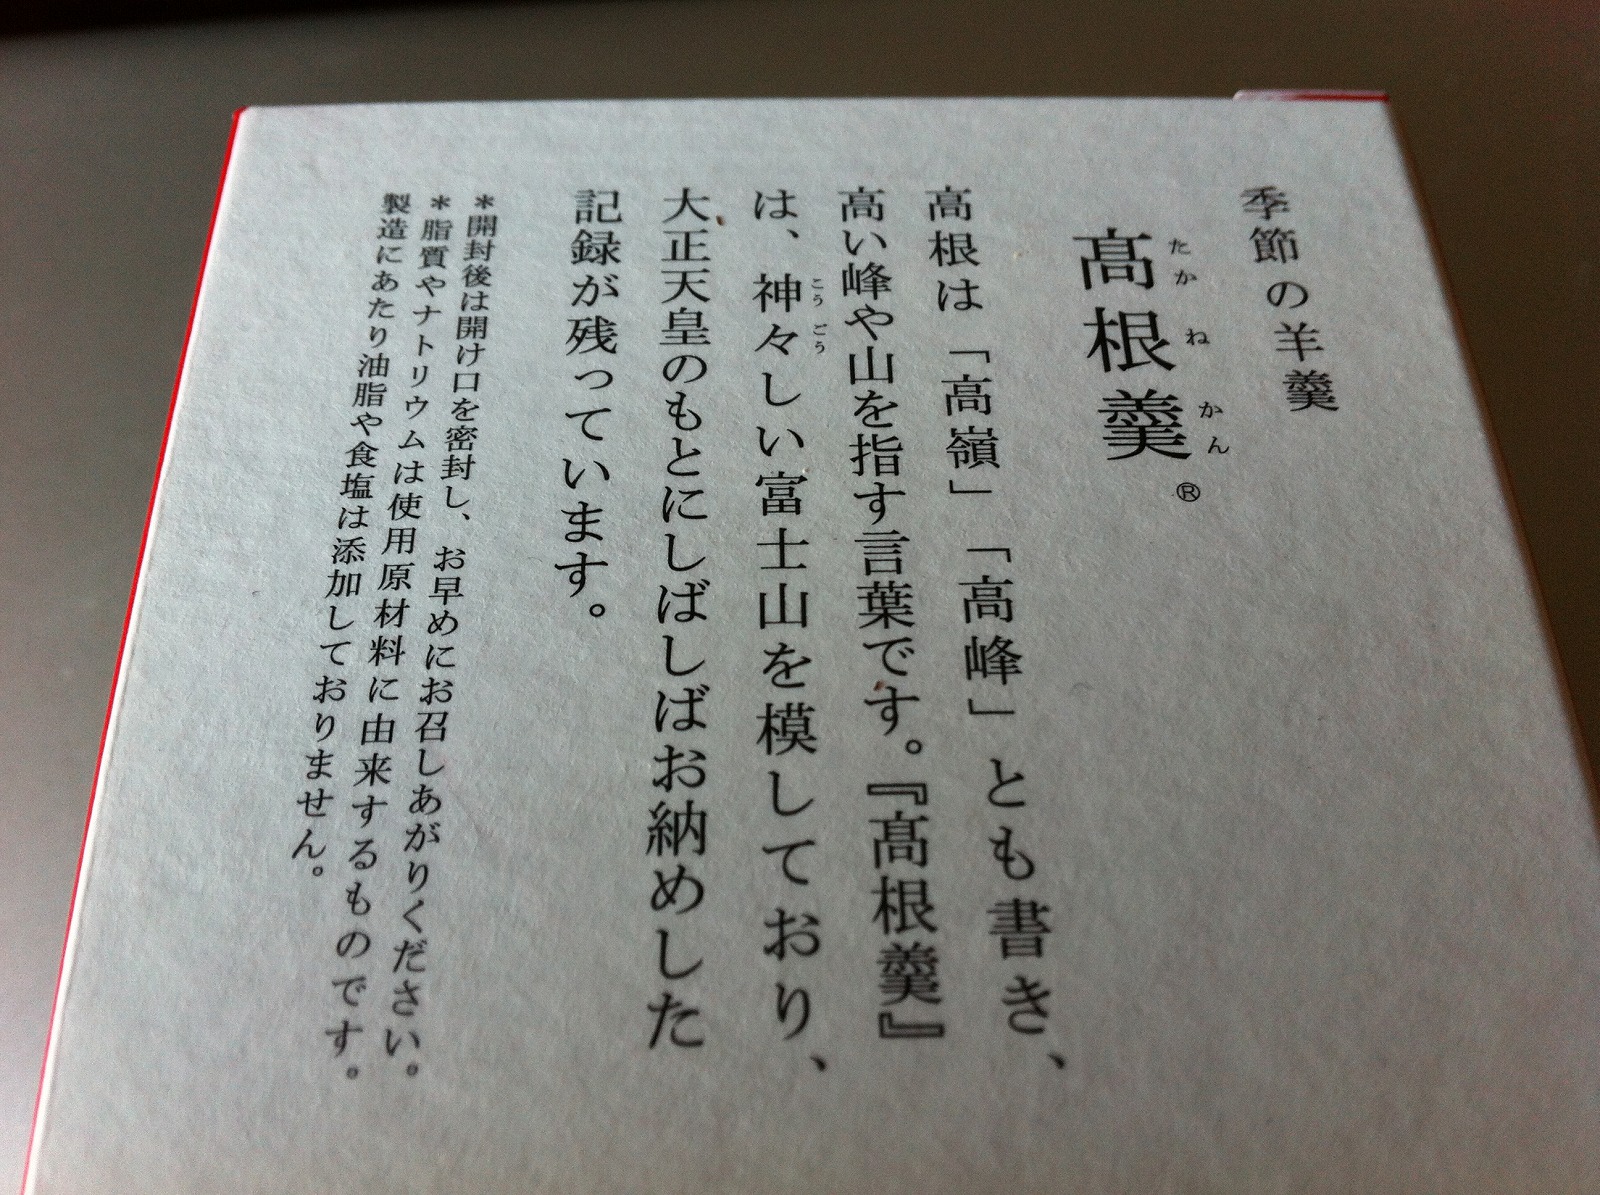 季節の羊羹
髙根羹®
たかねかん
高根は「高嶺」「高峰」とも書き、
高い峰や山を指す言葉です。『髙根羹』
は、神々しい富士山を模しており、
こうごう
大正天皇のもとにしばしばお納めした
記録が残っています。
＊開封後は開け口を密封し、お早めにお召しあがりください。
＊脂質やナトリウムは使用原材料に由来するものです。
製造にあたり油脂や食塩は添加しておりません。